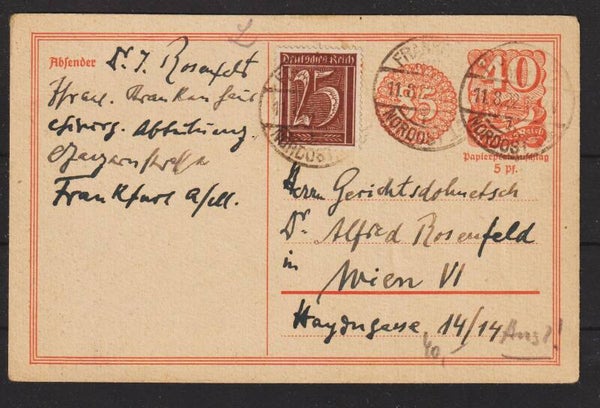 Absender Dr. J. Rosenfeld
Israel. Krankenhaus
chirurg. Abteilung
Frankfurt a/M.
Deutsches Reich
25
25
40
Reich
11.8.22
NORDOST
Papierpreiszuschlag
5 pf.
Herrn Gerichtsdolmetsch
Dr. Alfred Rosenfeld
in
Wien VI
Haydngasse 14/14
40,